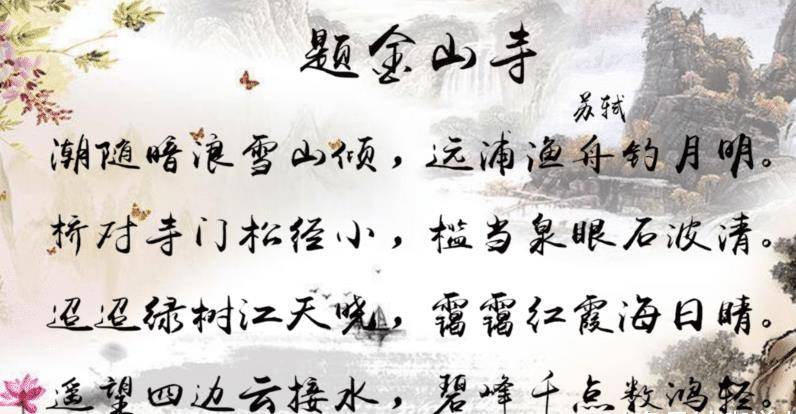 题金山寺
苏轼
潮随暗浪雪山倾，远浦渔舟钓月明。
桥对寺门松径小，槛当泉眼石波清。
迢迢绿树江天晓，霭霭红霞海日晴。
遥望四边云接水，碧峰千点数鸿轻。